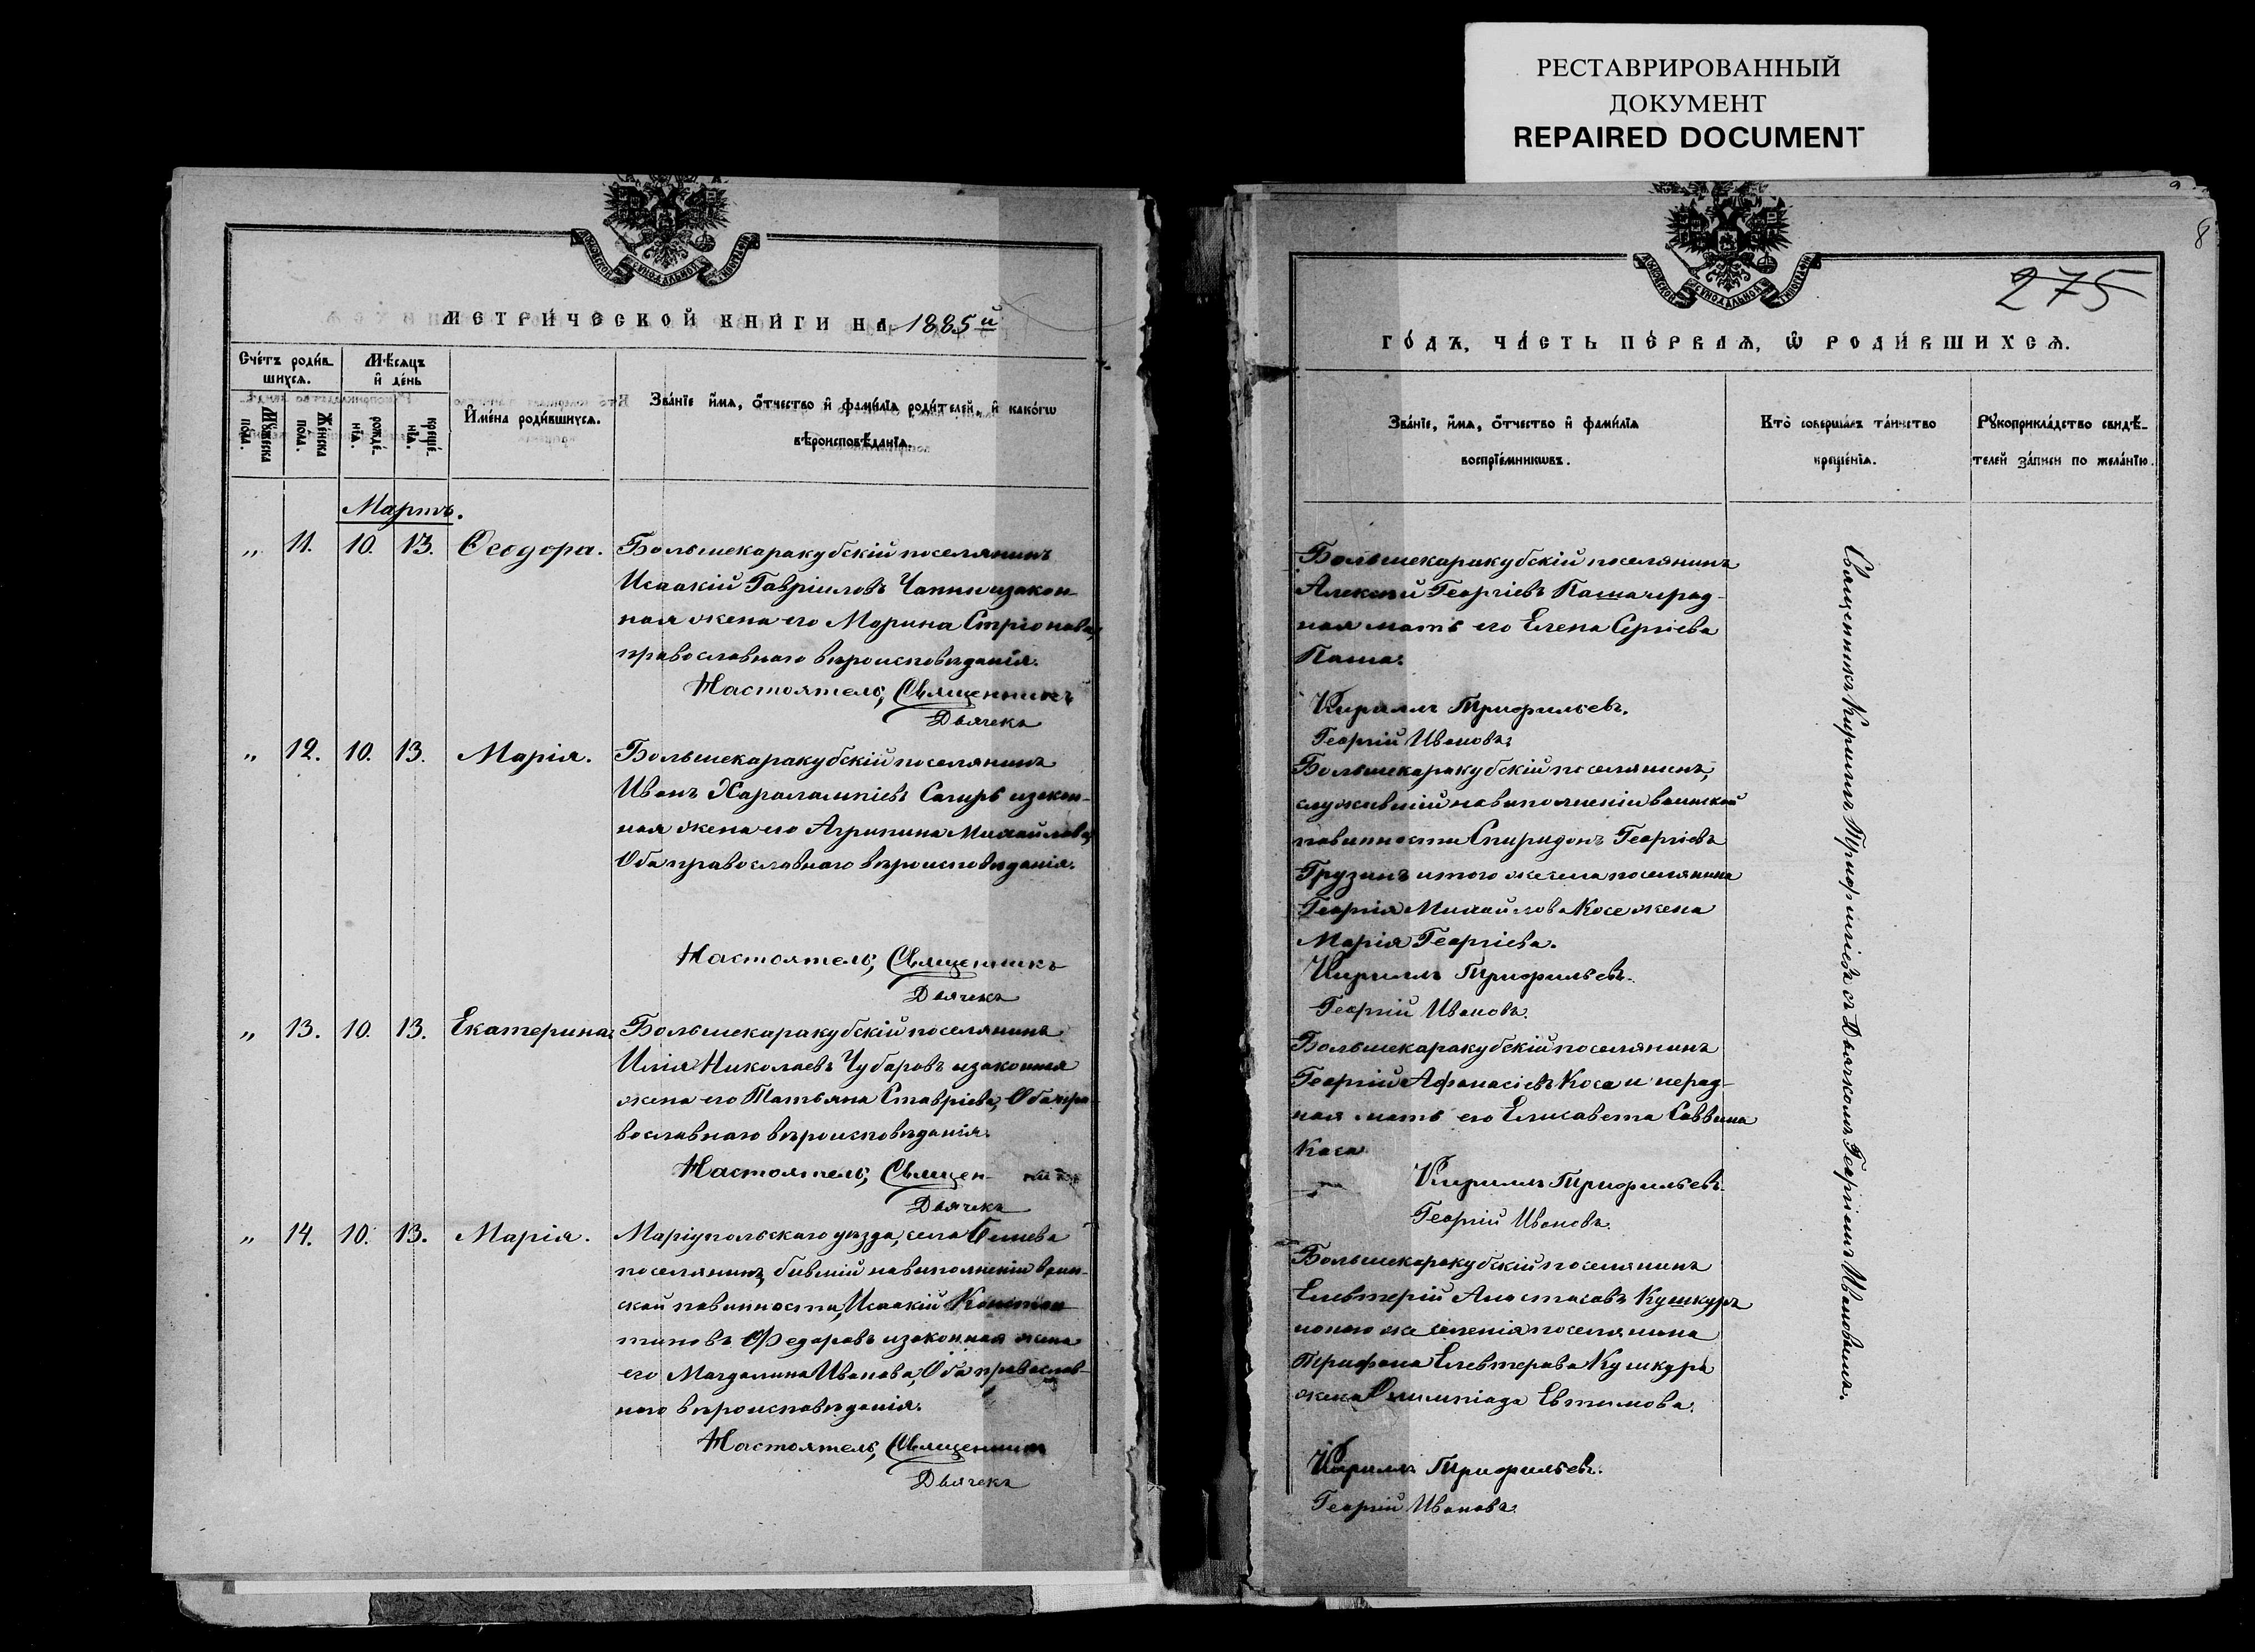 РЕСТАВРИРОВАННЫЙ
ДОКУМЕНТ
REPAIRED DOCUMENT
8
275
МОСКОВСКОЙ СѴНОДАЛЬНОЙ ТИПОГРАФІИ
МЕТРИ́ЧЕСКОЙ КНИ́ГИ НА 1885й
Сче́тъ роди́вшихсѧ.
Мꙋ́жеска по́ла.
Же́нска по́ла.
Мѣ́сѧцъ и҆ де́нь
рожде́нїѧ.
креще́нїѧ.
И҆мена̀ роди́вшихсѧ.
Зва́нїе и҆́мѧ, ѻ҆́тчество и҆ фами́лїѧ роди́телей, и҆ како́гѡ
вѣроисповѣ́данїѧ.
Мартъ.
„ 11. 10. 13. Ѳеодора. Большекаракубскій поселянинъ
Исаакій Гавріиловъ Чапни и закон-
ная жена его Марина Стріонова,
православнаго вѣроисповѣданія.
Настоятель, Священникъ
Дьячекъ
„ 12. 10. 13. Марія. Большекаракубскій поселянинъ
Иванъ Харалампіевъ Сагиръ и закон-
ная жена его Агрипина Михайлова,
Оба православнаго вѣроисповѣданія.
Настоятель, Священникъ
Дьячекъ
„ 13. 10. 13. Екатерина. Большекаракубскій поселянинъ
Илія Николаевъ Чубаровъ и законная
жена его Татьяна Ставріева, Оба пра-
вославнаго вѣроисповѣданія.
Настоятель, Священникъ
Дьячекъ
„ 14. 10. 13. Марія. Маріупольскаго уѣзда, села Бешева
поселянинъ, бывшій на выполненіи воин-
ской повинности, Исаакій Констан-
тиновъ Федоровъ и законная жена
его Магдалина Иванова, Оба православ-
наго вѣроисповѣданія.
Настоятель, Священникъ
Дьячекъ
МОСКОВСКОЙ СѴНОДАЛЬНОЙ ТИПОГРАФІИ
ГО́ДЪ, ЧА́СТЬ ПЕ́РВАѦ, Ѽ РОДИ́ВШИХСѦ.
Зва́нїе, и҆́мѧ, ѻ҆́тчество и҆ фами́лїѧ
воспрїе́мникѡвъ.
Кто̀ соверша́лъ та́инство
креще́нїѧ.
Рꙋкоприкла́дство свидѣ́-
телей за́писи по жела́нїю.
Большекаракубскій поселянинъ
Алексій Георгіевъ Паша и род-
ная мать его Елена Сергіева
Паша.
Кирилъ Трифильевъ.
Георгій Ивановъ.
Большекаракубскій поселянинъ,
служившій на выполненіи воинской
повинности Спиридонъ Георгіевъ
Грузинъ и того же села поселянина
Георгія Михайлова Косе жена
Марія Георгіева.
Кирилъ Трифильевъ.
Георгій Ивановъ.
Большекаракубскій поселянинъ
Георгій Афанасіевъ Коса и нерод-
ная мать его Елисавета Саввина
Коса.
Кирилъ Трифильевъ.
Георгій Ивановъ.
Большекаракубскій поселянинъ
Елевтерій Анастасовъ Кушкуръ
и того же селенія поселянина
Трифона Елевтерова Кушкура
жена Олимпіада Евтимова.
Кирилъ Трифильевъ.
Георгій Ивановъ.
Священникъ Кирилъ Трифиліевъ съ Дьячкомъ Георгіемъ Ивановымъ.